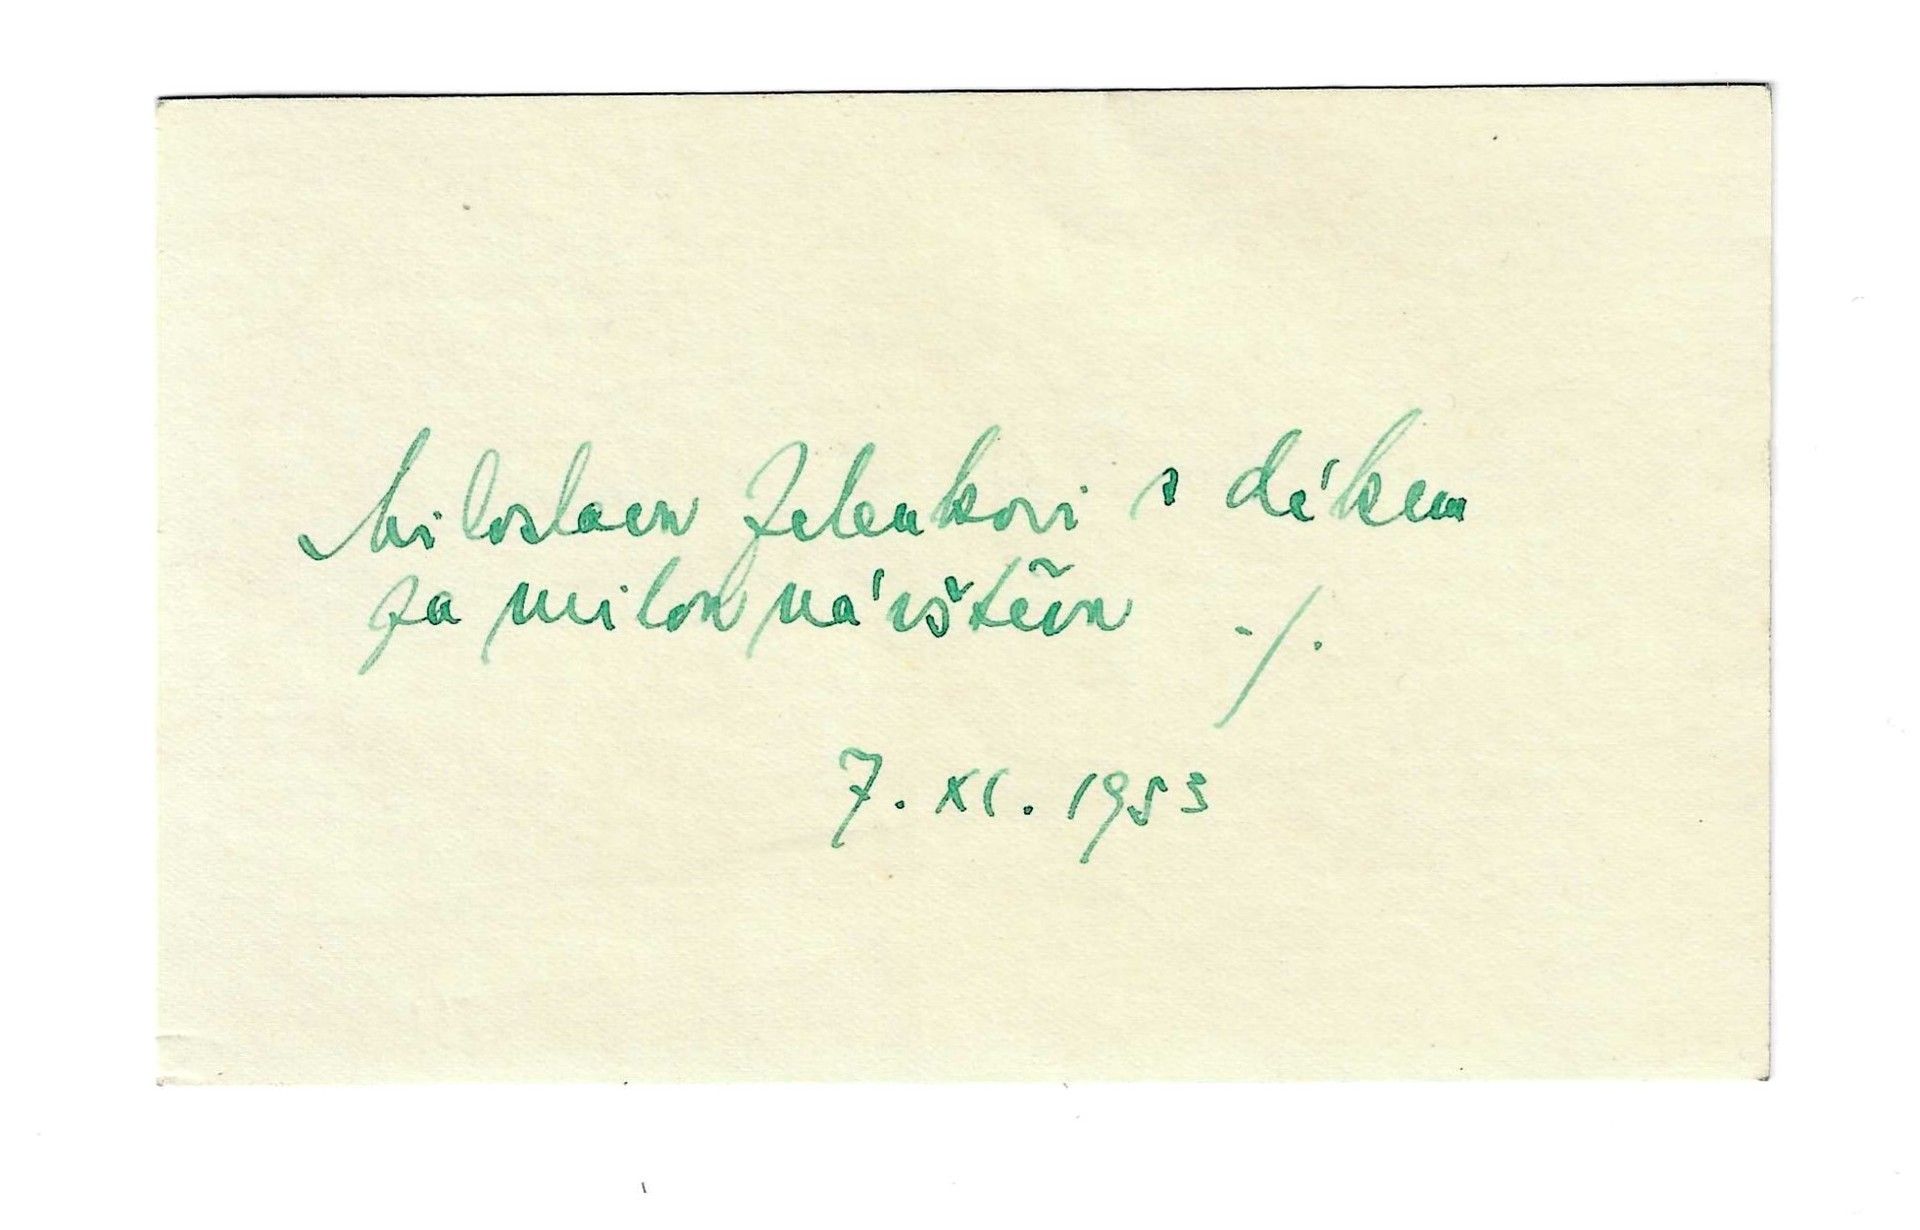 Miloslavu Jelenkovi s díkem
za milou návštěvu ./.
7. XI. 1953